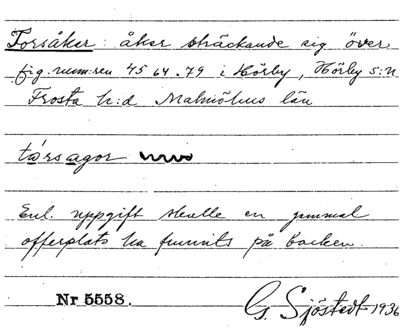 Torsåker: åker sträckande sig över
fig.num:ren 45 64.79 i Hörby, Hörby s:n
Frosta h:d Malmöhus län
tǫrsagor
Enl. uppgift skulle en gammal
offerplats ha funnits på backen.
Nr 5558.
G. Sjöstedt 1936